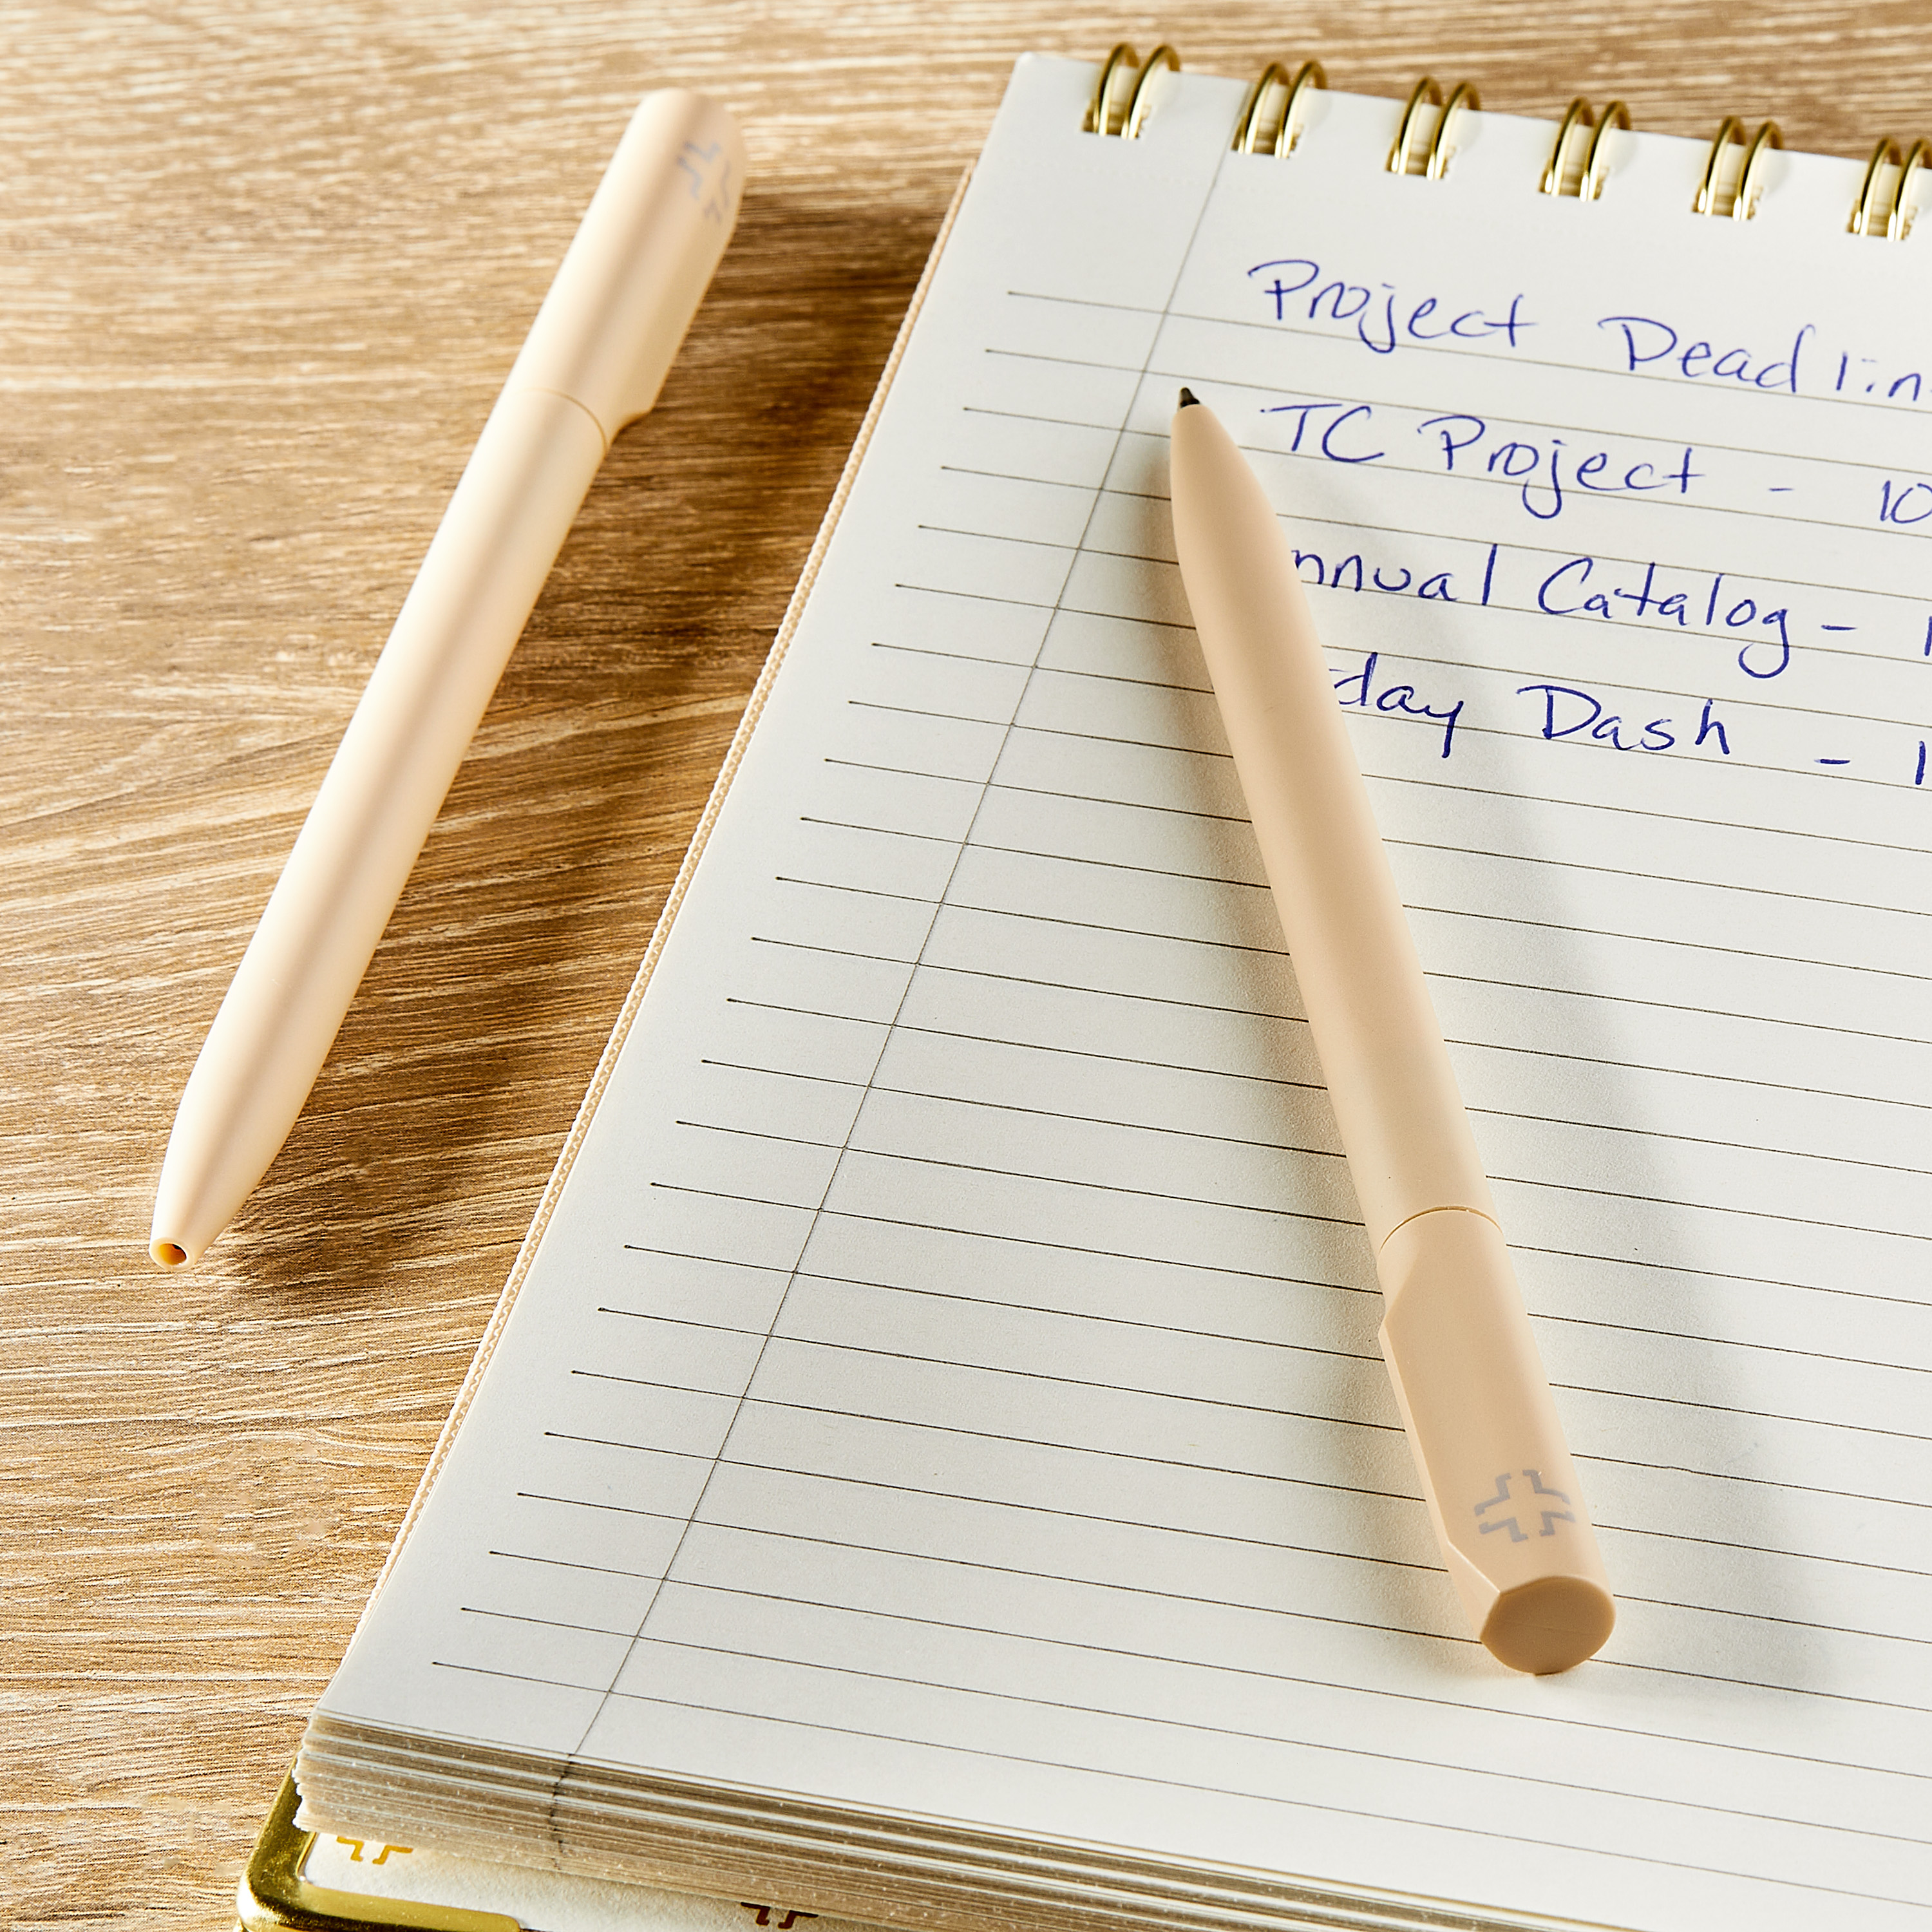 Project Deadlin
TC Project - 10
nnual Catalog -
day Dash -